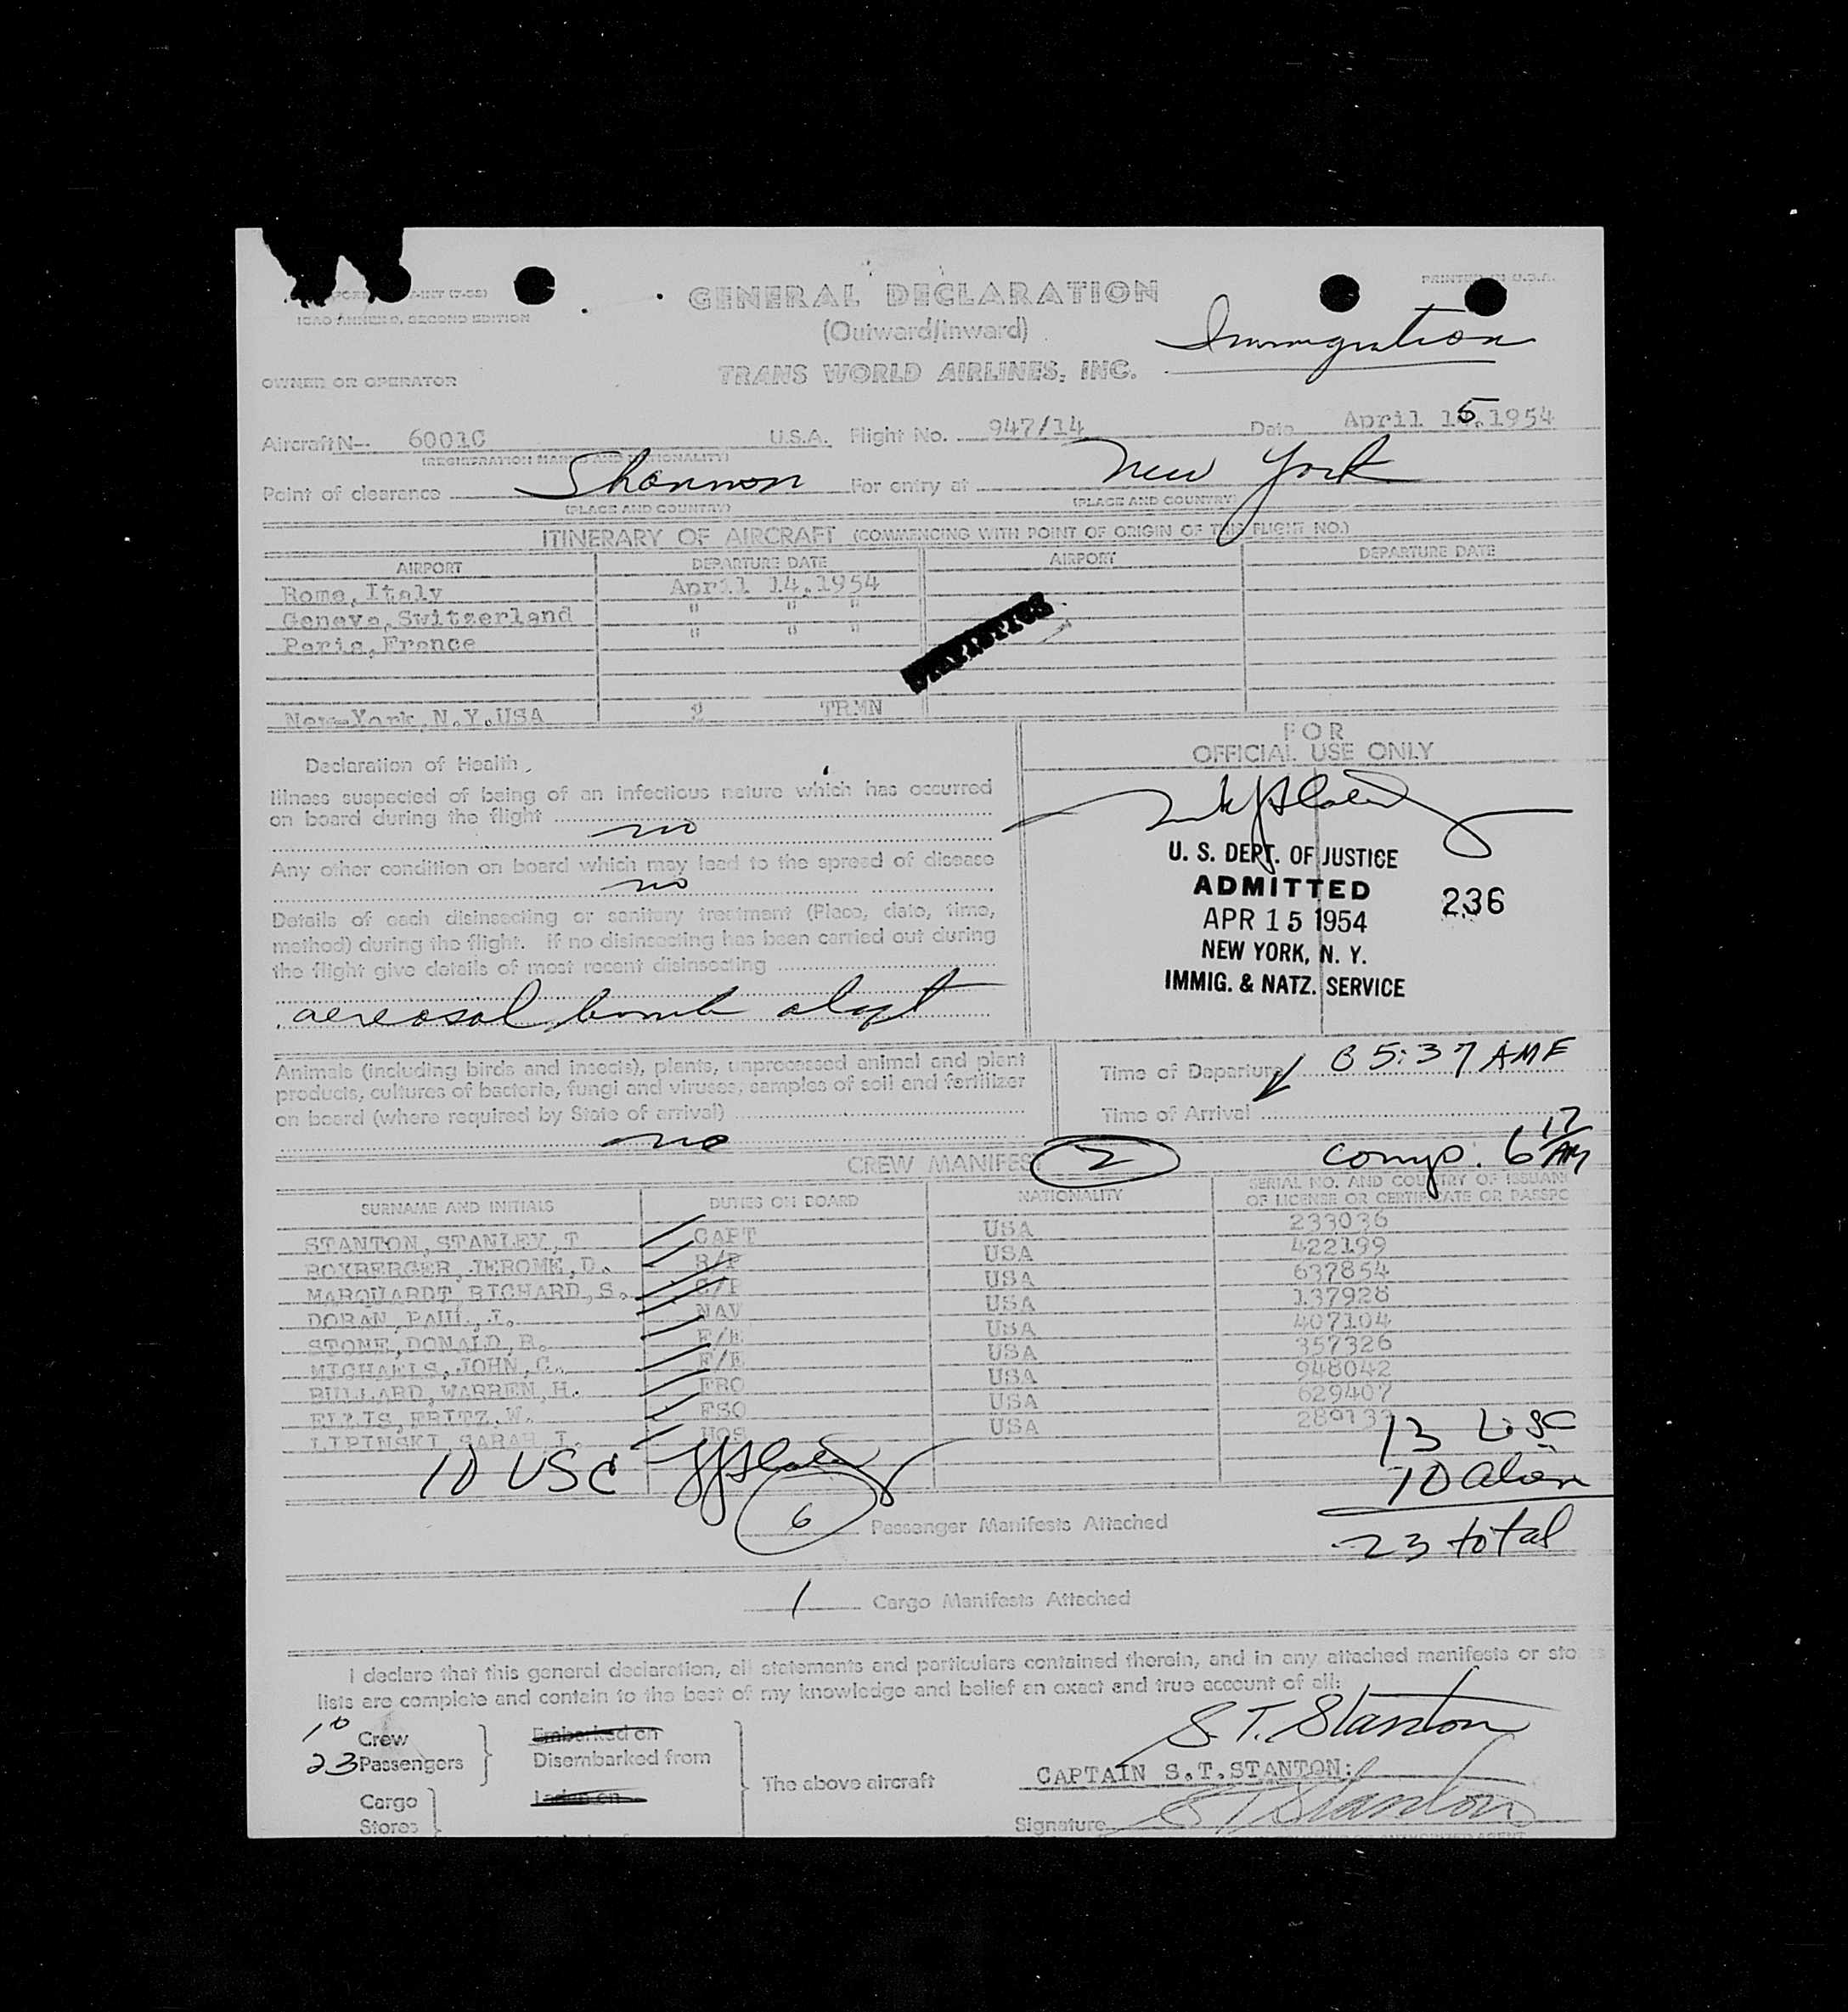 GENERAL DECLARATION
PRINTED IN U.S.A.
ICAO ANNEX 9, SECOND EDITION
(Outward/Inward)
Immigration
TRANS WORLD AIRLINES, INC.
OWNER OR OPERATOR
Aircraft N-- 6001C U.S.A. Flight No. 947/14 Date April 15, 1954
(REGISTRATION MARKS AND NATIONALITY)
Point of clearance Shannon For entry at New York
(PLACE AND COUNTRY) (PLACE AND COUNTRY)
ITINERARY OF AIRCRAFT (COMMENCING WITH POINT OF ORIGIN OF THIS FLIGHT NO.)
AIRPORT DEPARTURE DATE AIRPORT DEPARTURE DATE
Rome, Italy April 14, 1954
Geneva, Switzerland " " "
Paris, France " " "
STATISTICS
New York, N.Y. USA TRMN
FOR
OFFICIAL USE ONLY
Declaration of Health
Illness suspected of being of an infectious nature which has occurred
on board during the flight
no
Any other condition on board which may lead to the spread of disease
no
Details of each disinsecting or sanitary treatment (Place, date, time,
method) during the flight. If no disinsecting has been carried out during
the flight give details of most recent disinsecting
aereosol bomb
U. S. DEPT. OF JUSTICE
ADMITTED 236
APR 15 1954
NEW YORK, N. Y.
IMMIG. & NATZ. SERVICE
Animals (including birds and insects), plants, unprocessed animal and plant
products, cultures of bacteria, fungi and viruses, samples of soil and fertilizer
on board (where required by State of arrival)
no
Time of Departure 05:37 AM
Time of Arrival
Comp. 6 17 AM
CREW MANIFEST 2
SURNAME AND INITIALS DUTIES ON BOARD NATIONALITY SERIAL NO. AND COUNTRY OF ISSUAN
OF LICENSE OR CERTIFICATE OR PASSPO
STANTON, STANLEY, T CAPT USA 233036
BOXBERGER, JEROME, D. R/P USA 422199
MARQUARDT, RICHARD, S. USA 637854
DORAN, PAUL, J. NAV USA 137928
STONE, DONALD, R. F/E USA 407104
MICHAELS, JOHN, C. F/E USA 357326
BULLARD, WARREN, H. FRO USA 948042
ELLIS, FRITZ, W. FSO USA 629407
LIPINSKI, SARAH, I. HOS USA
10 USC
13 USC
10 alien
23 total
6 Passenger Manifests Attached
1 Cargo Manifests Attached
I declare that this general declaration, all statements and particulars contained therein, and in any attached manifests or sto
lists are complete and contain to the best of my knowledge and belief an exact and true account of all:
10 Crew
23 Passengers
Embarked on
Disembarked from
The above aircraft
Cargo
Stores
Laden on
S.T. Stanton
CAPTAIN S.T.STANTON:
Signature S T Stanton